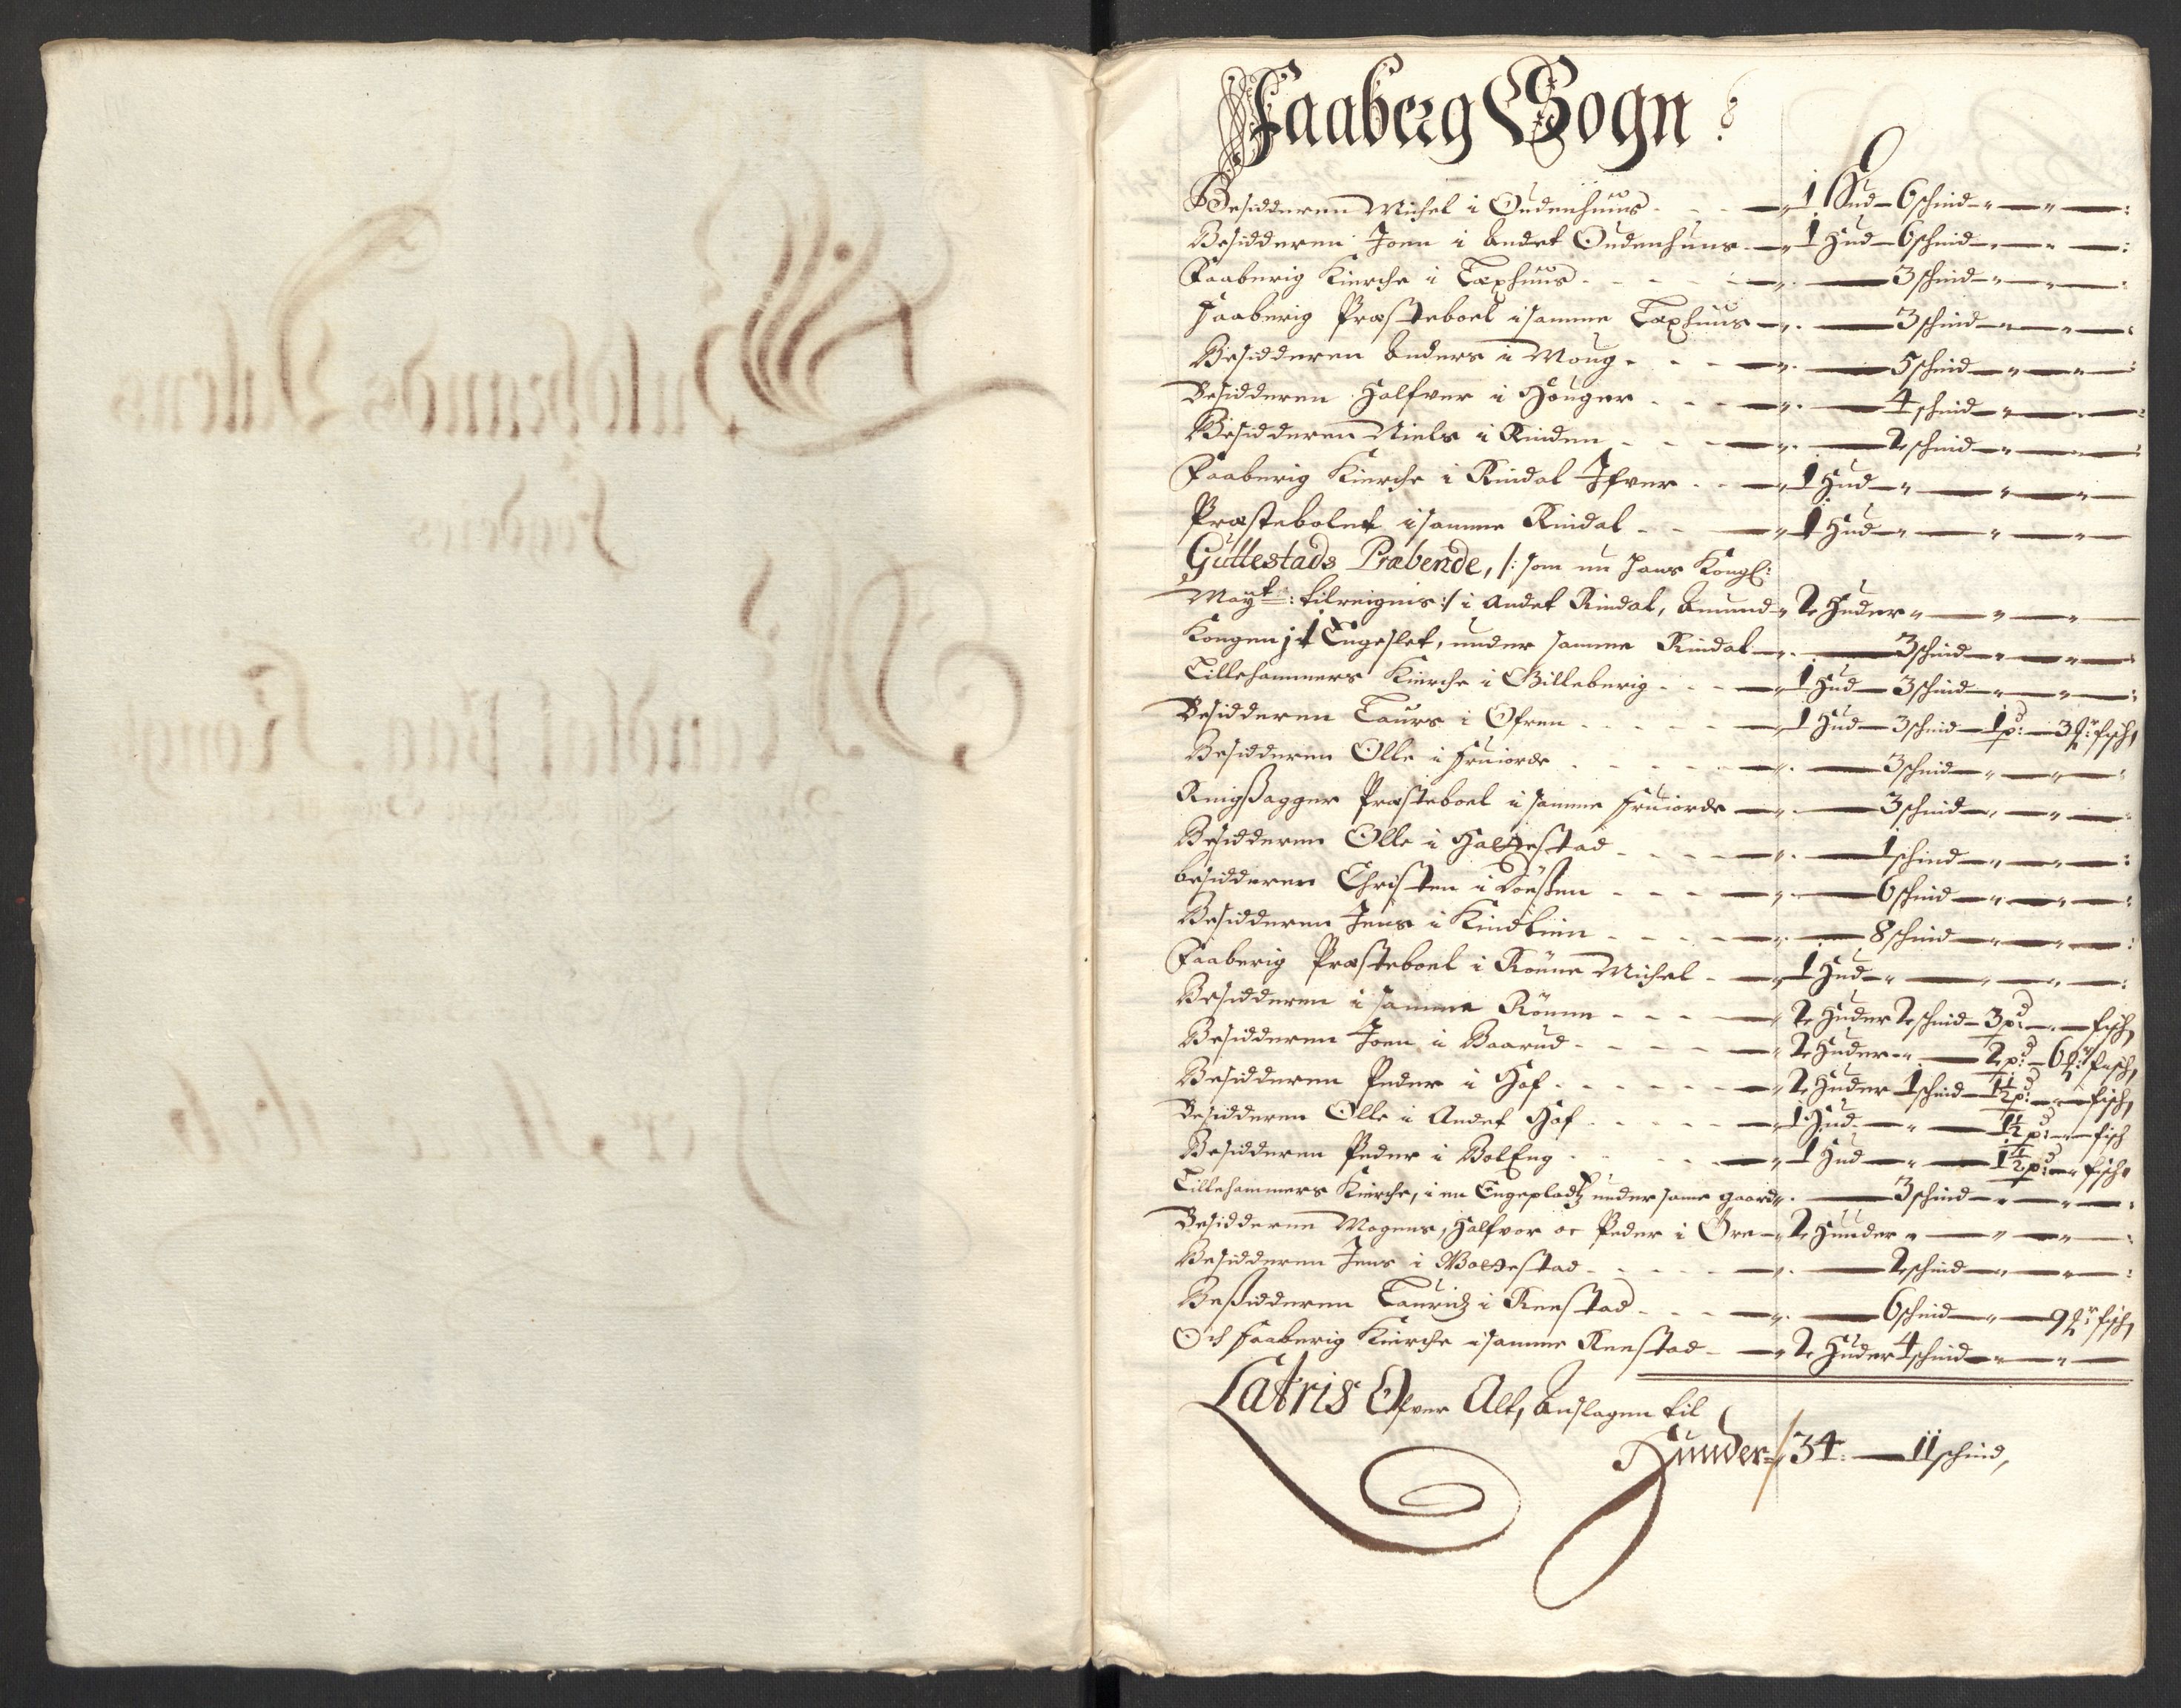 Faaberg Sogn
Besidderen Michel i Oudenhuus - - - 1 Hud - 6 schind
Besidderen Joen i Andet Oudenhuus - 1 Hud - 6 schind
Faaberig Kierche i Taxhuus - - - 3 schind
Faaberig Præsteboel i samme Taxhuus - 3 schind
Besidderen Anders i Moug - - - 5 schind
Besidderen Halfver i Houger - - - 4 schind
Besidderen Niels i Rinden - - - 2 schind
Faaberig Kierche i Rindal Ifver - - 1 Hud
Præstebolet i samme Rindal - - 1 Hud
Guttestads Præbende, /: som nu Hans Kongl:
Mayt: tilreignis :/ i Andet Rindal, Amund 2 Huder
Kongen it Engeslet, under samme Rindal - 3 schind
Lillehammers Kierche i Gilleberig - - - 1 Hud - 3 schind
Besidderen Laurs i Ofren - - - 1 Hud - 3 schind - 1 pd: - 3 fisch
Besidderen Olle i Fruiorde - - - 3 schind
Ringsagger Præsteboel i samme Fruiorde - 3 schind
Besidderen Olle i - - - 1 schind
besidderen Christen i - - - 6 schind
Besidderen Jens i Kindlien - - - 8 schind
Faaberig Præsteboel i Rönne Michel - 1 Hud
Besidderen i samme Rönne - - - 2 Huder 2 schind - 3 pd: - fisch
Besidderen Joen i Baarud - - - 2 Huder - 2 pd: - 6 fisch
Besidderen Peder i Hof - - - 2 Huder 1 schind - 1½ pd: - fisch
Besidderen Olle i Andet Hof - - - 1 Hud - 1½ pd: - fisch
Besidderen Peder i BolEng - - - 1 Hud - 1½ pd: - fisch
Lillehammers Kierche, i en Engepladtz under same gaard - 3 schind
Besidderne Mogens, Halfvor oc Peder i Öre - 2 Huuder
Besidderen Jens i - - - 2 schind
Besidderen Lauridz i Reestad - - - 6 schind - 9 fisch
Och Faaberig Kierche i samme Reestad - 2 Huder 4 schind
Latris Ofver Alt, Anslagen til
Huuder - 34 - 11 schind,